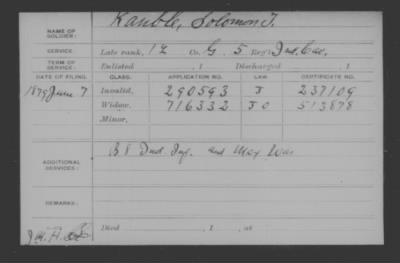 NAME OF SOLDIER: Kauble, Solomon T.
SERVICE: Late rank, 1 L Co. G, 5 Reg't Ind. Cav.
TERM OF SERVICE: Enlisted , 1 Discharged , 1
DATE OF FILING. CLASS. APPLICATION NO. LAW CERTIFICATE NO.
1879 June 7 Invalid, 290593 J 237109
Widow, 716332 513878
Minor,
ADDITIONAL SERVICES: B 8 Ind. Inf. and Mex War
REMARKS:
Died , 1 , at